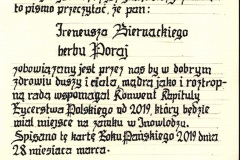 to pismo przeczytać, że pan:
Ireneusza Bierwackiego
herbu Poraj
zobowiązany jest przez nas by w dobrym
zdrowiu duszy i ciała, mądrą jako i roztrop-
ną radą wspomagał Konwent Kapituły
Rycerstwa Polskiego od 2019, który będzie
miał miejsce na zamku w Inowłodzu.
Spisano tę kartę Roku Pańskiego 2019 dnia
28 miesiąca marca.